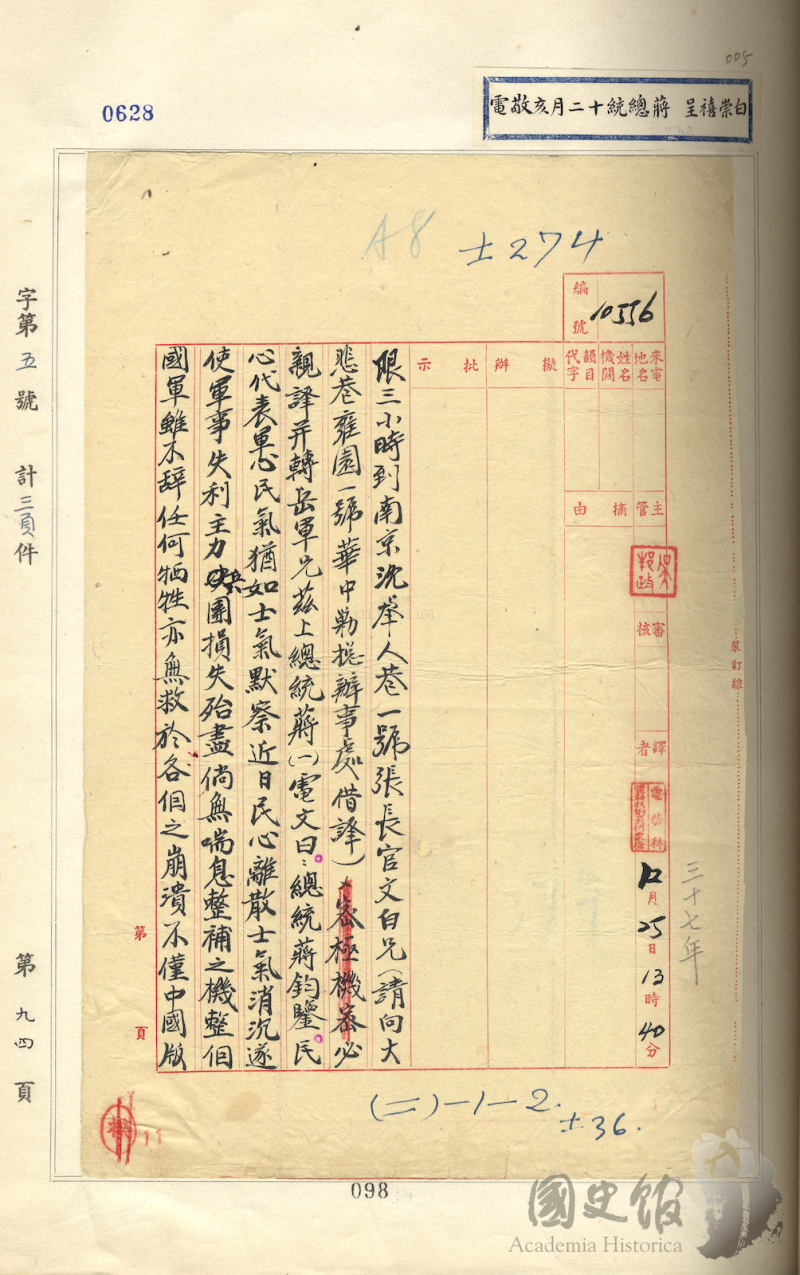 005
0628
白崇禧呈 蔣總統十二月亥敬電
A8
±274
編號 10556
來電地名
姓名機關
韻目代字
擬辦
批示
主管
摘由
審核
譯者
電務科
12月25日13時40分
三十七年
裝訂線
限三小時到南京沈舉人巷一號張長官文白兄（請向大
悲巷雍園一號華中剿總辦事處借譯）密極機密必
親譯并轉岳軍兄茲上總統蔣（一）電文曰：總統蔣鈞鑒民
心代表軍心民氣猶如士氣默察近日民心離散士氣消沉遂
使軍事失利主力兵團損失殆盡倘無喘息整補之機整個
國軍雖不辭任何犧牲亦無救於各個之崩潰不僅中國版
第 頁
字第五號 計三頁件
第九四頁
(二)-1-2.
±36.
11
098
國史館
Academia Historica